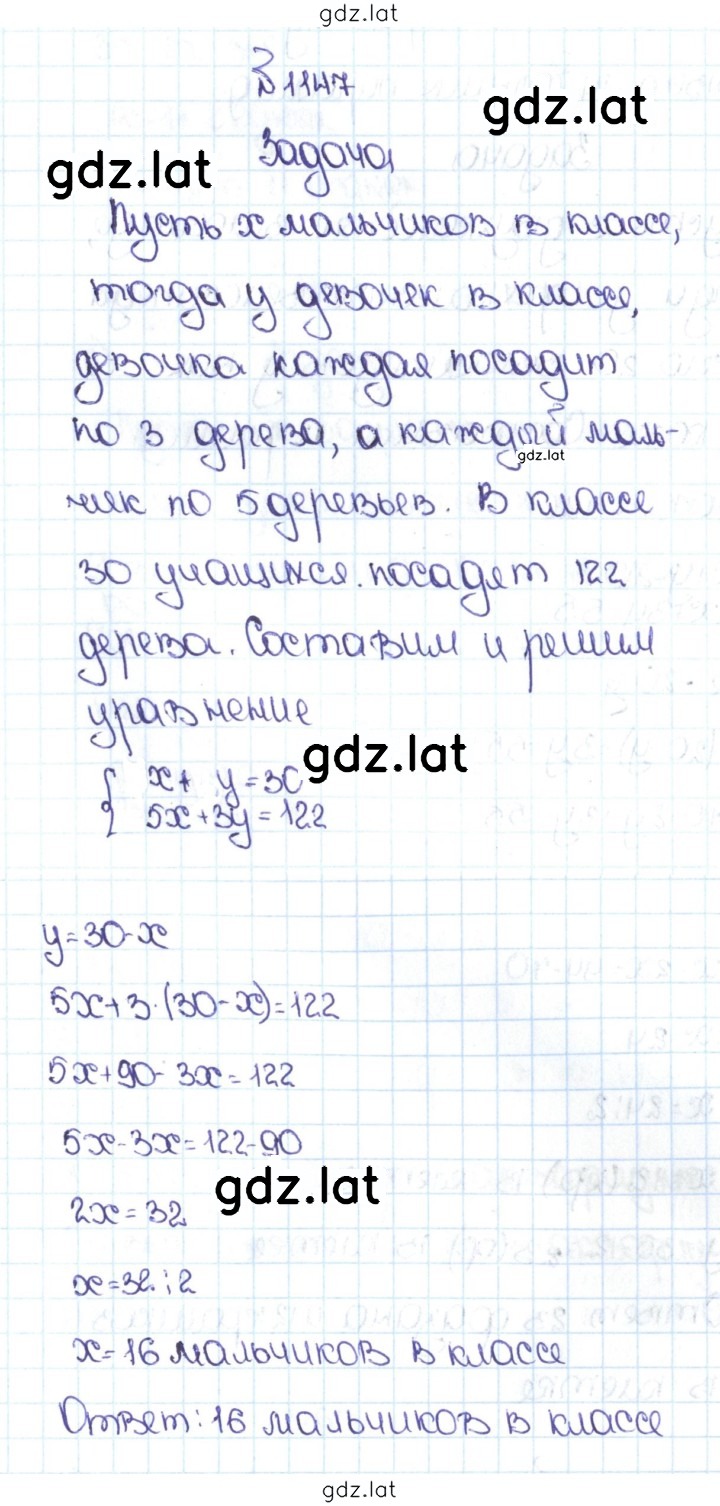 gdz.lat
№1147
gdz.lat
Задача
gdz.lat
Пусть x мальчиков в классе,
тогда y девочек в классе,
девочка каждая посадит
по 3 дерева, а каждый маль-
gdz.lat
чик по 5 деревьев. В классе
30 учащихся. посадят 122
дерева. Составим и решим
уравнение
gdz.lat
{ x + y = 30
5x + 3y = 122
y = 30 - x
5x + 3·(30 - x) = 122
5x + 90 - 3x = 122
5x - 3x = 122 - 90
gdz.lat
2x = 32
x = 32 : 2
x = 16 мальчиков в классе
Ответ: 16 мальчиков в классе
gdz.lat